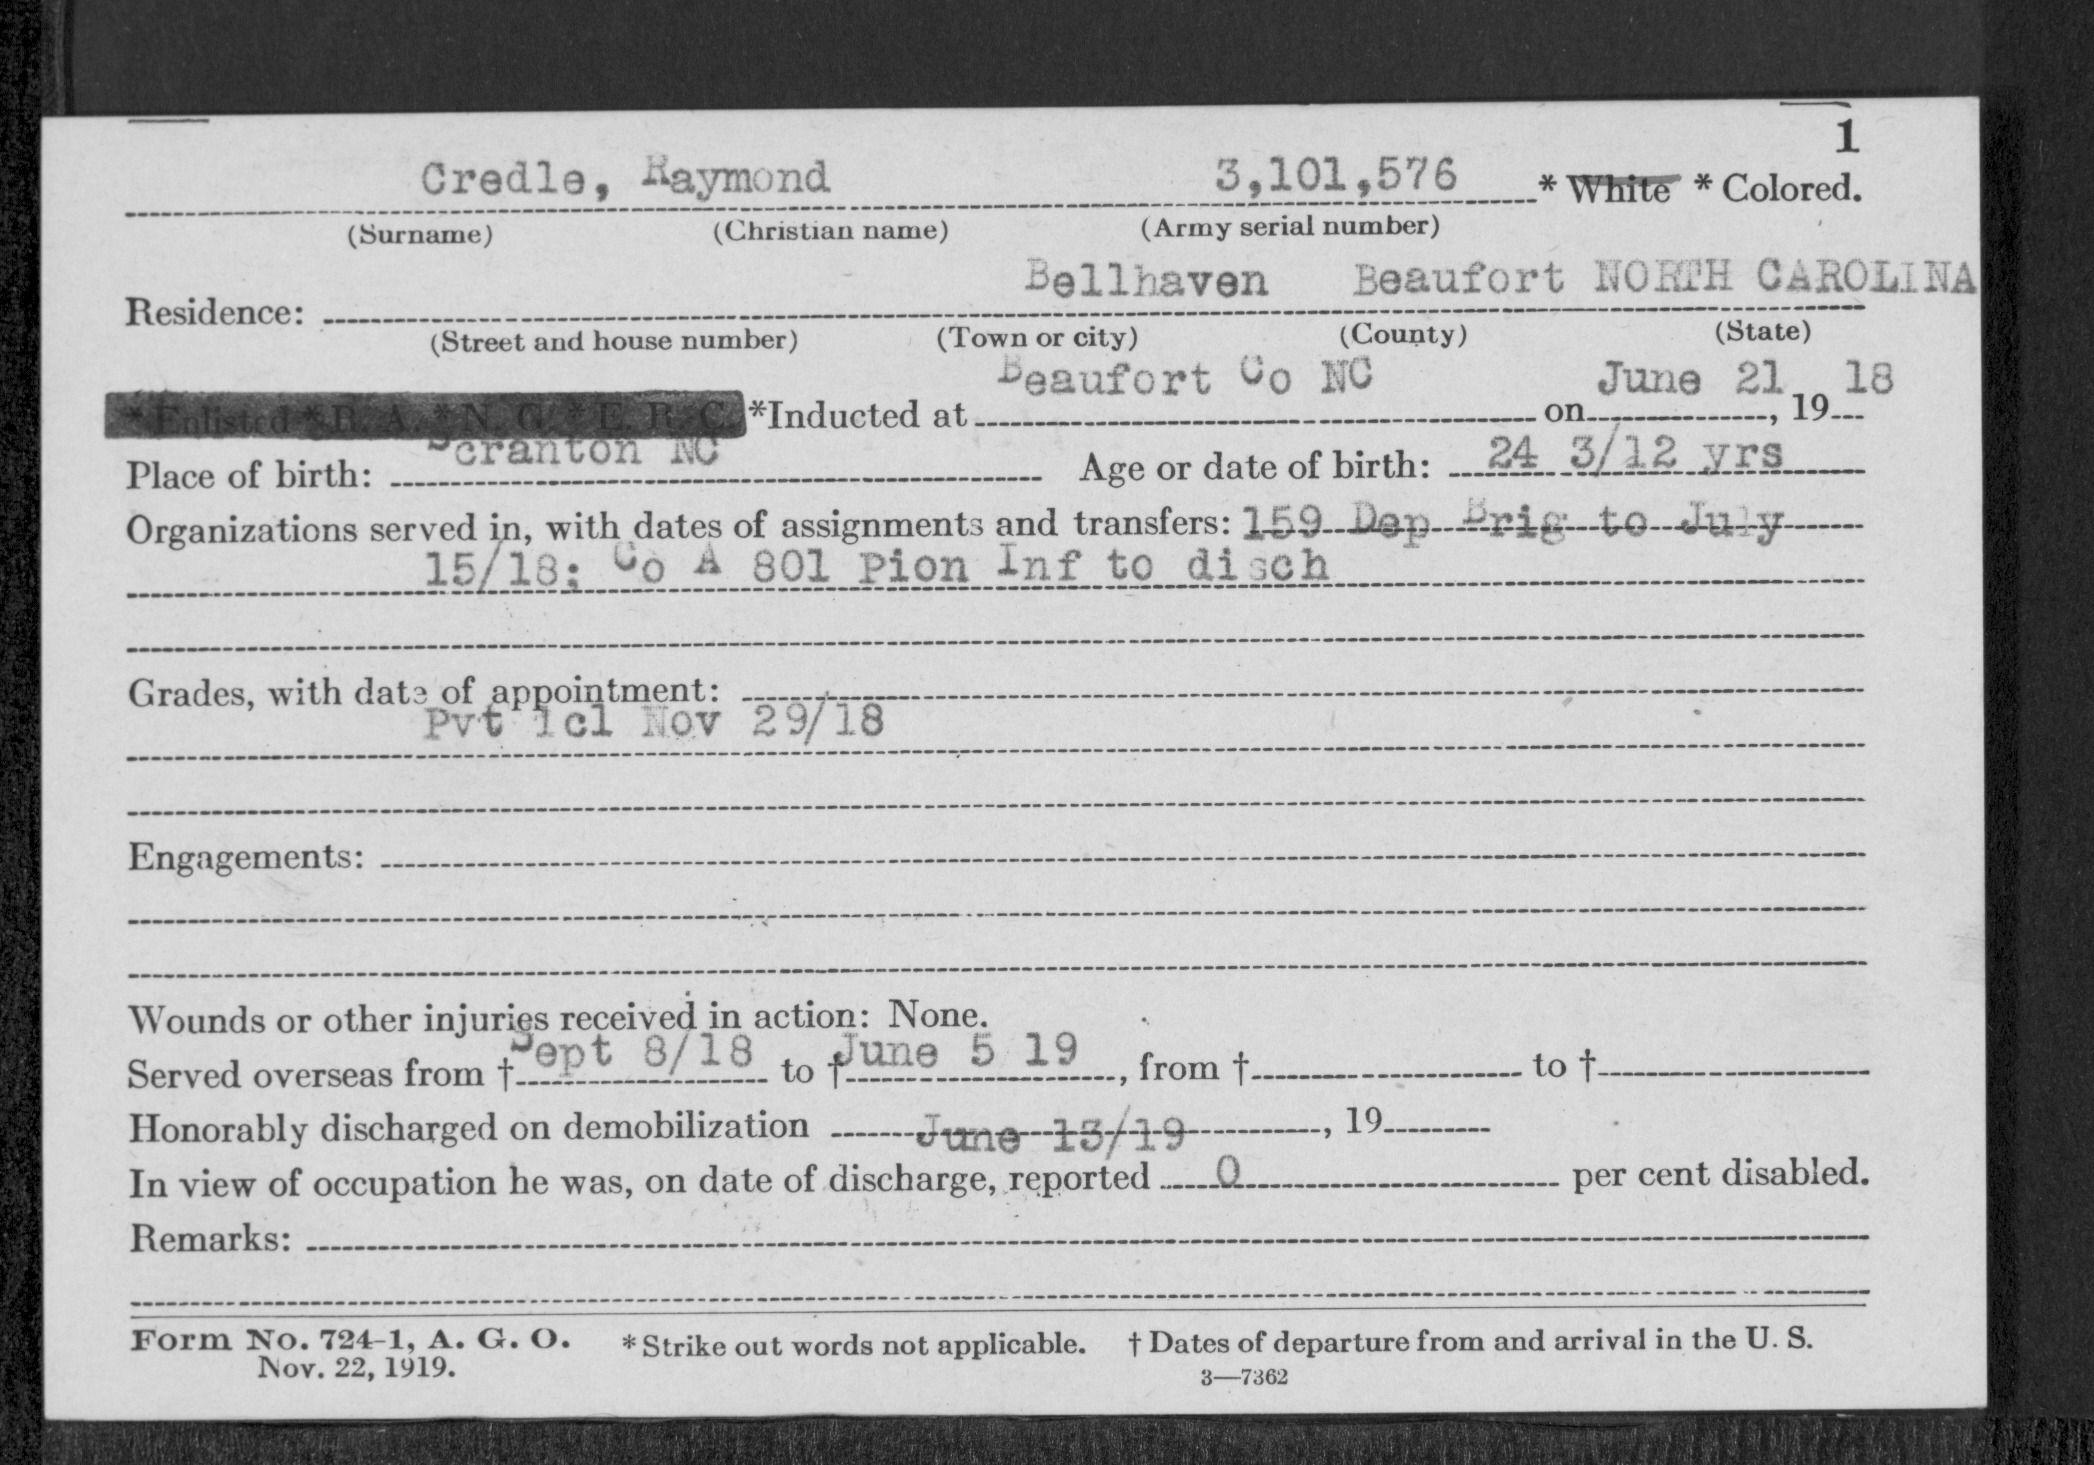 1
Credle, Raymond 3,101,576 * White * Colored.
(Surname) (Christian name) (Army serial number)
Bellhaven Beaufort NORTH CAROLINA
Residence:
(Street and house number) (Town or city) (County) (State)
Beaufort Co NC June 21 18
*Enlisted *R. A. *N. G. *E. R. C. *Inducted at on , 19
Scranton NC 24 3/12 yrs
Place of birth: Age or date of birth:
Organizations served in, with dates of assignments and transfers: 159 Dep Brig to July
15/18; Co A 801 Pion Inf to disch
Grades, with date of appointment:
Pvt 1cl Nov 29/18
Engagements:
Wounds or other injuries received in action: None.
Served overseas from † Sept 8/18 to † June 5 19, from † to †
Honorably discharged on demobilization June 13/19, 19
In view of occupation he was, on date of discharge, reported 0 per cent disabled.
Remarks:
Form No. 724-1, A. G. O. * Strike out words not applicable. † Dates of departure from and arrival in the U. S.
Nov. 22, 1919. 3—7362